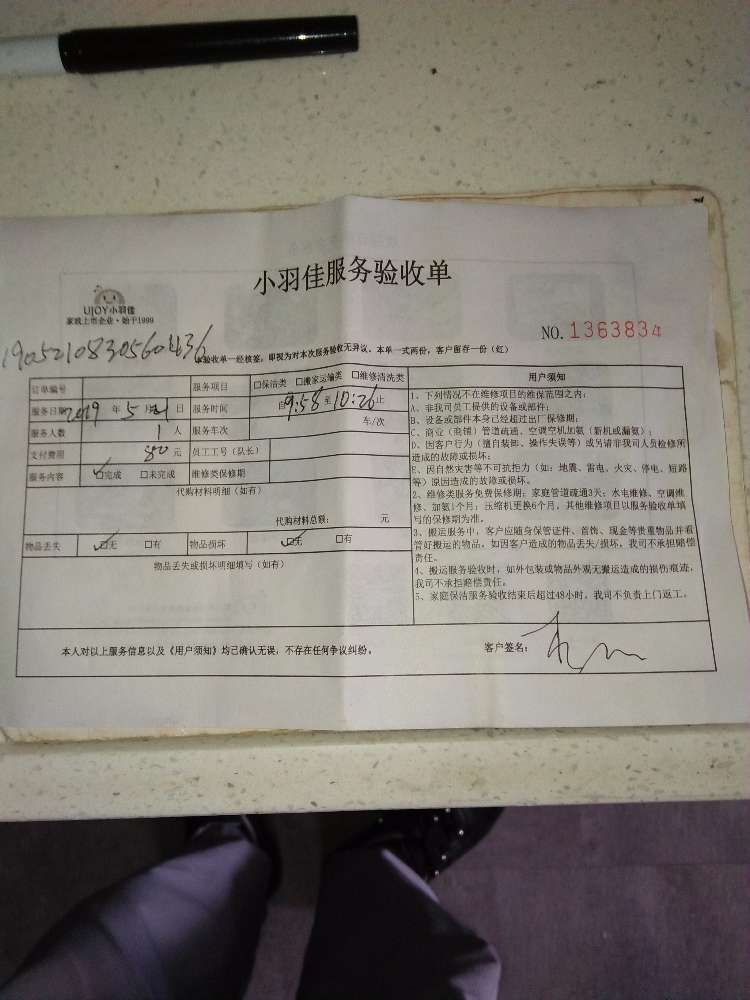 小羽佳服务验收单
UJOY小羽佳
家政上市企业·始于1999
NO.1363834
本验收单一经核签，即视为对本次服务验收无异议。本单一式两份，客户留存一份（红）
订单编号 服务项目 □保洁类 □搬家运输类 □维修清洗类
服务日期 2019 年 5 月 21 日 服务时间 自 9:58 至 10:26 止
服务人数 1 人 服务车次 车/次
支付费用 元 员工工号（队长）
服务内容 ☑完成 □未完成 维修类保修期
代购材料明细（如有）
代购材料总额： 元
物品丢失 ☑无 □有 物品损坏 ☑无 □有
物品丢失或损坏明细填写（如有）
用户须知
1、下列情况不在维修项目的维保范围之内：
A、非我司员工提供的设备或部件；
B、设备或部件本身已经超过出厂保修期；
C、商业（商铺）管道疏通、空调空机加氨（新机或漏氨）；
D、因客户行为（擅自装卸、操作失误等）或另请非我司人员检修所
造成的故障或损坏；
E、因自然灾害等不可抗拒力（如：地震、雷电、火灾、停电、短路
等）原因造成的故障或损坏。
2、维修类服务免费保修期：家庭管道疏通3天；水电维修、空调维
修、加氨1个月；压缩机更换6个月，其他维修项目以服务验收单填
写的保修期为准。
3、搬运服务中，客户应随身保管证件、首饰、现金等贵重物品并看
管好搬运的物品，如因客户造成的物品丢失/损坏，我司不承担赔偿
责任。
4、搬运服务验收时，如外包装或物品外观无搬运造成的损伤痕迹，
我司不承担赔偿责任。
5、家庭保洁服务验收结束后超过48小时，我司不负责上门返工。
本人对以上服务信息以及《用户须知》均已确认无误，不存在任何争议纠纷。 客户签名：